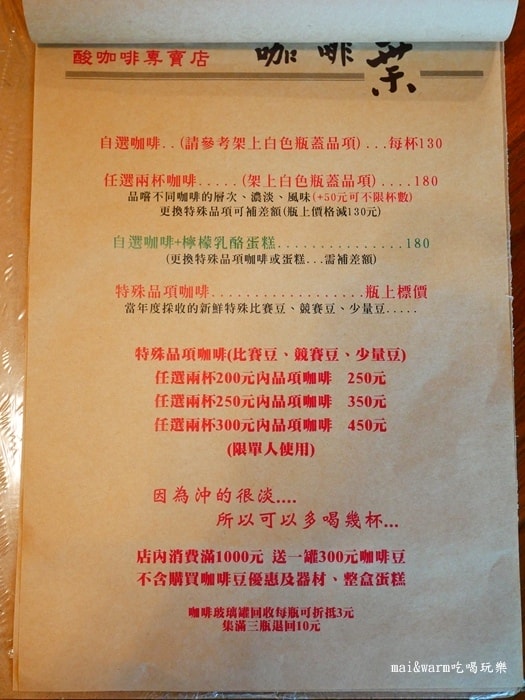 酸咖啡專賣店
咖啡葉
自選咖啡..(請參考架上白色瓶蓋品項)...每杯130
任選兩杯咖啡.....(架上白色瓶蓋品項)....180
品嚐不同咖啡的層次、濃淡、風味(+50元可不限杯數)
更換特殊品項可補差額(瓶上價格減130元)
自選咖啡+檸檬乳酪蛋糕...............180
(更換特殊品項咖啡或蛋糕...需補差額)
特殊品項咖啡..................瓶上標價
當年度採收的新鮮特殊比賽豆、競賽豆、少量豆.....
特殊品項咖啡(比賽豆、競賽豆、少量豆)
任選兩杯200元內品項咖啡 250元
任選兩杯250元內品項咖啡 350元
任選兩杯300元內品項咖啡 450元
(限單人使用)
因為沖的很淡....
所以可以多喝幾杯...
店內消費滿1000元 送一罐300元咖啡豆
不含購買咖啡豆優惠及器材、整盒蛋糕
咖啡玻璃罐回收每瓶可折抵3元
集滿三瓶退回10元
mai&warm吃喝玩樂